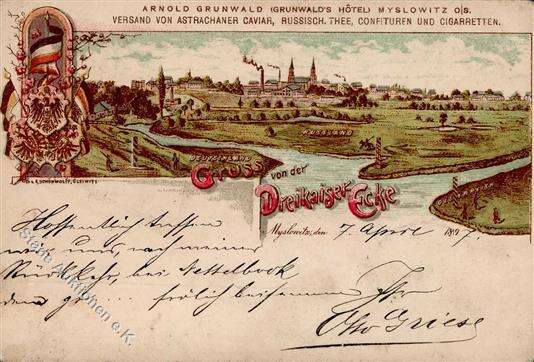 ARNOLD GRUNWALD (GRUNWALD'S HÔTEL) MYSLOWITZ O/S.
VERSAND VON ASTRACHANER CAVIAR, RUSSISCH. THEE, CONFITUREN UND CIGARRETTEN.
RUSSLAND
DEUTSCHLAND
Gruss von der
Dreikaiser-Ecke
Myslowitz, den 7. April 1897.
Hoffentlich treffen
wir uns, nach meiner
Rückkehr, bei Nettelbeck
fröhlich beisammen Ihr
Otto Griese